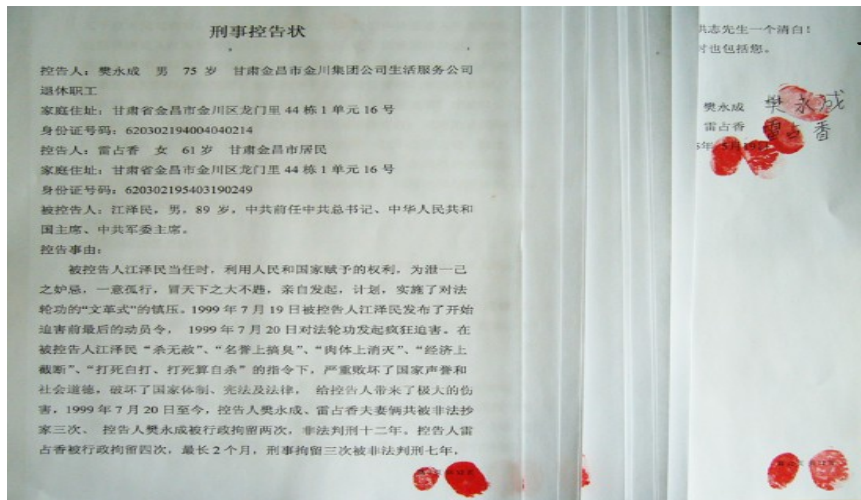 刑事控告状
控告人：樊永成 男 75 岁 甘肃金昌市金川集团公司生活服务公司
退休职工
家庭住址：甘肃省金昌市金川区龙门里 44 栋 1 单元 16 号
身份证号码：620302194004040214
控告人：雷占香 女 61 岁 甘肃金昌市居民
家庭住址：甘肃省金昌市金川区龙门里 44 栋 1 单元 16 号
身份证号码：620302195403190249
被控告人：江泽民，男，89 岁，中共前任中共总书记、中华人民共和
国主席、中共军委主席。
控告事由：
被控告人江泽民当任时，利用人民和国家赋予的权利，为泄一己
之妒忌，一意孤行，冒天下之大不韪，亲自发起，计划，实施了对法
轮功的“文革式”的镇压。1999 年 7 月 19 日被控告人江泽民发布了开始
迫害前最后的动员令， 1999 年 7 月 20 日对法轮功发起疯狂迫害。在
被控告人江泽民“杀无赦”、“名誉上搞臭”、“肉体上消灭”、“经济上
截断”、“打死白打、打死算自杀”的指令下，严重败坏了国家声誉和
社会道德，破坏了国家体制、宪法及法律， 给控告人带来了极大的伤
害，1999 年 7 月 20 日至今，控告人樊永成、雷占香夫妻俩共被非法抄
家三次、 控告人樊永成被行政拘留两次，非法判刑十二年。控告人雷
占香被行政拘留四次，最长 2 个月，刑事拘留三次被非法判刑七年，
洪志先生一个清白！
时也包括您。
樊永成 樊永成
雷占香 雷占香